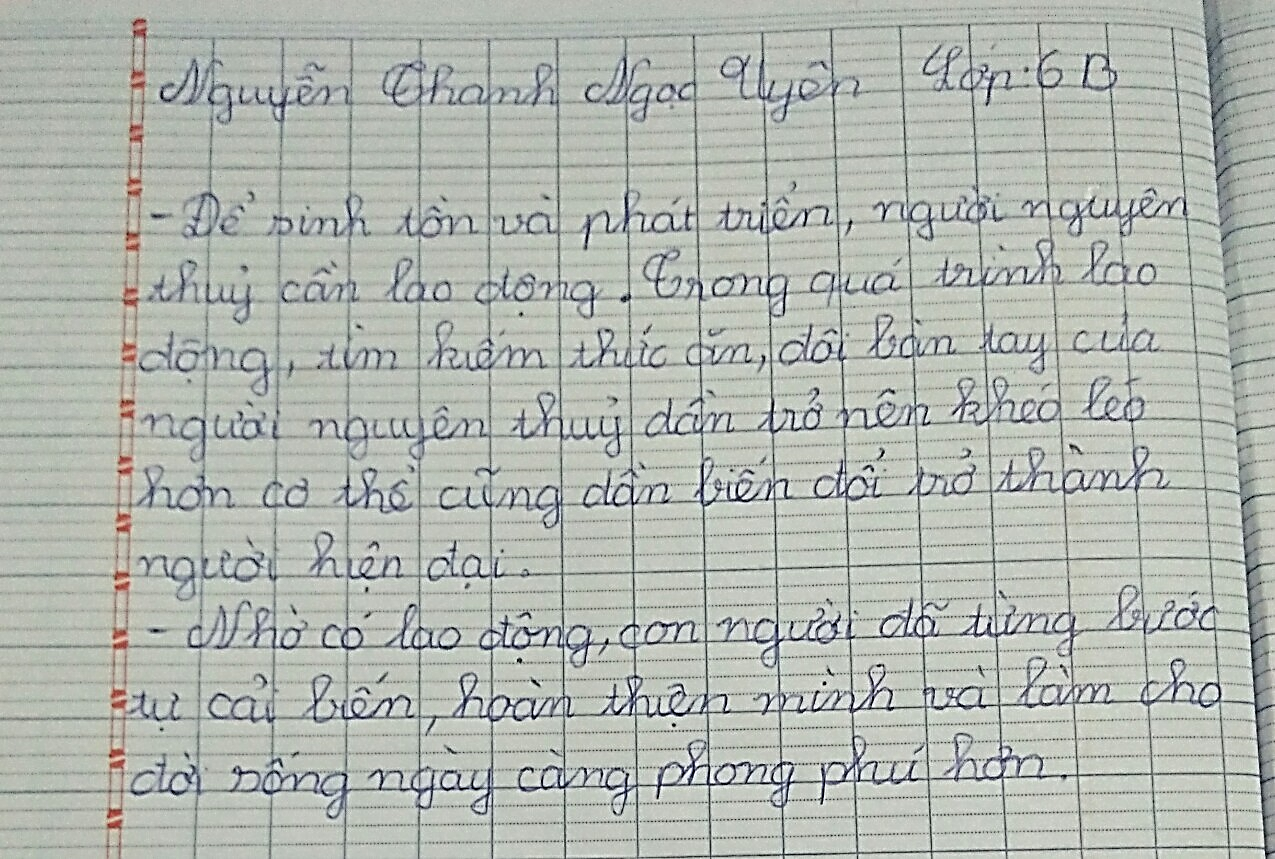 Nguyễn Thanh Ngọc Uyên Lớp: 6B
- Để sinh tồn và phát triển, người nguyên
thuỷ cần lao động. Trong quá trình lao
động, tìm kiếm thức ăn, đôi bàn tay của
người nguyên thuỷ dần trở nên khéo léo
hơn cơ thể cũng dần biến đổi trở thành
người hiện đại.
- Nhờ có lao động, con người đã từng bước
tự cải biến, hoàn thiện mình và làm cho
đời sống ngày càng phong phú hơn.